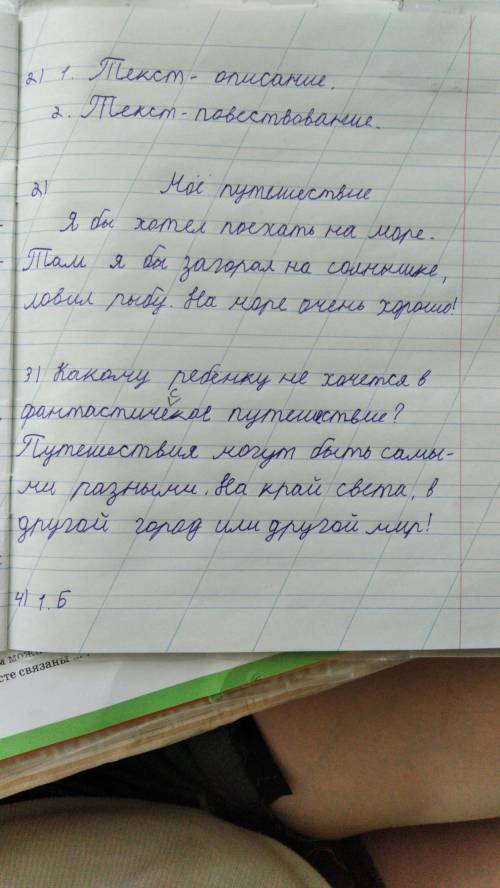 2) 1. Текст - описание.
2. Текст - повествование.
2) Моё путешествие
Я бы хотел поехать на море.
Там я бы загорал на солнышке,
ловил рыбу. На море очень хорошо!
3) Какому ребенку не хочется в
фантастическое путешествие?
Путешествия могут быть самы-
ми разными. На край света, в
другой город или другой мир!
4) 1. Б
сте связаны